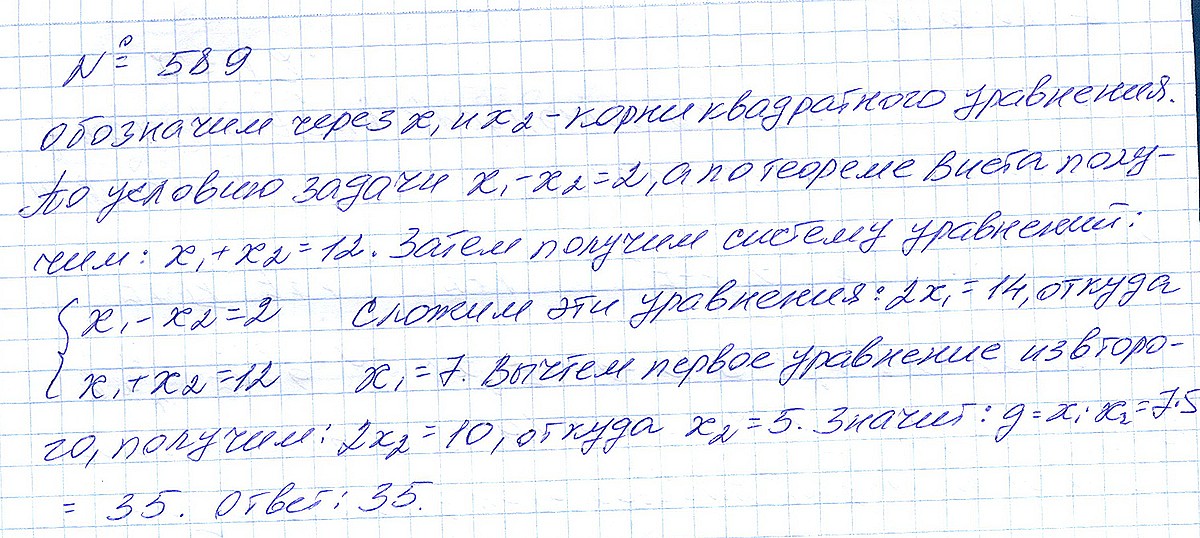 № 589
Обозначим через x₁ и x₂ - корни квадратного уравнения.
По условию задачи x₁ - x₂ = 2, а по теореме Виета полу-
чим: x₁ + x₂ = 12. Затем получим систему уравнений:
{ x₁ - x₂ = 2 Сложим эти уравнения: 2x₁ = 14, откуда
x₁ + x₂ = 12 x₁ = 7. Вычтем первое уравнение из второ-
го, получим: 2x₂ = 10, откуда x₂ = 5. Значит: g = x₁·x₂ = 7·5
= 35. Ответ: 35.